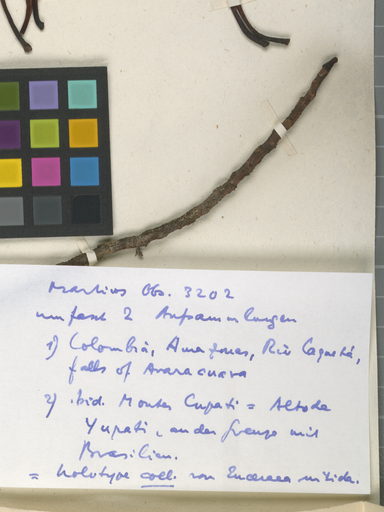 Martius Obs. 3202
umfasst 2 Aufsammlungen
1) Colombia, Amazonas, Rio Caquetá,
falls of Araracuara
2) ibid. Montes Cupati = Alto de
Yupati, an der Grenze mit
Brasilien.
= holotype coll. von Encerea nitida.